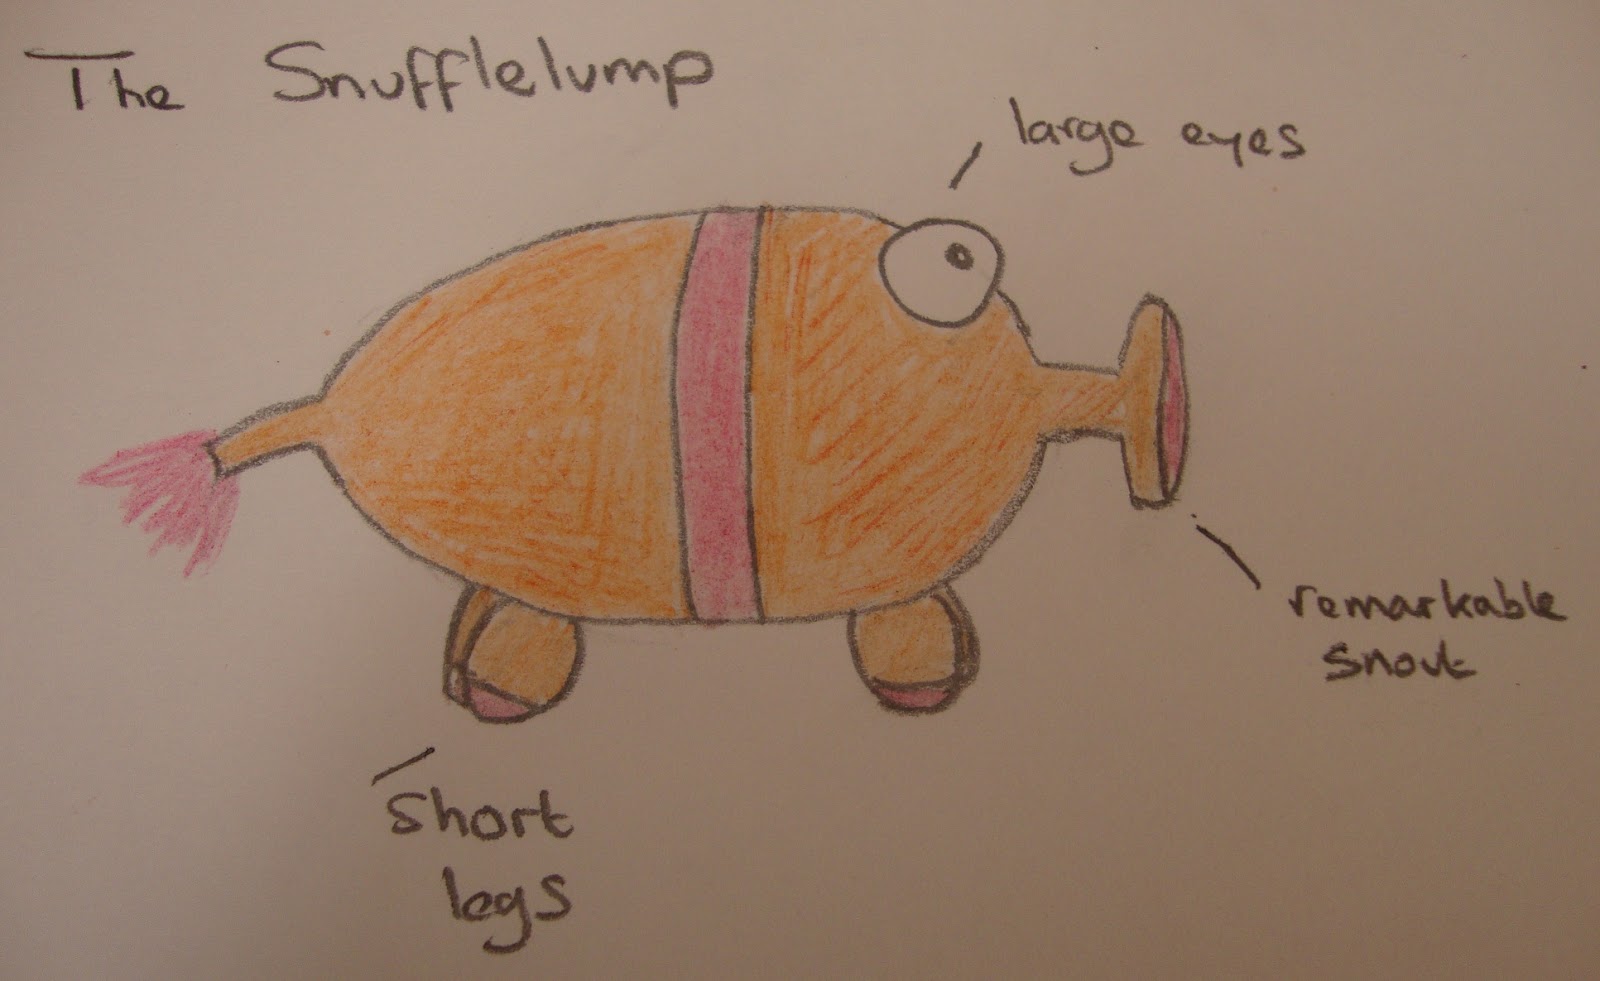 The Snufflelump
large eyes
remarkable
snout
short
legs